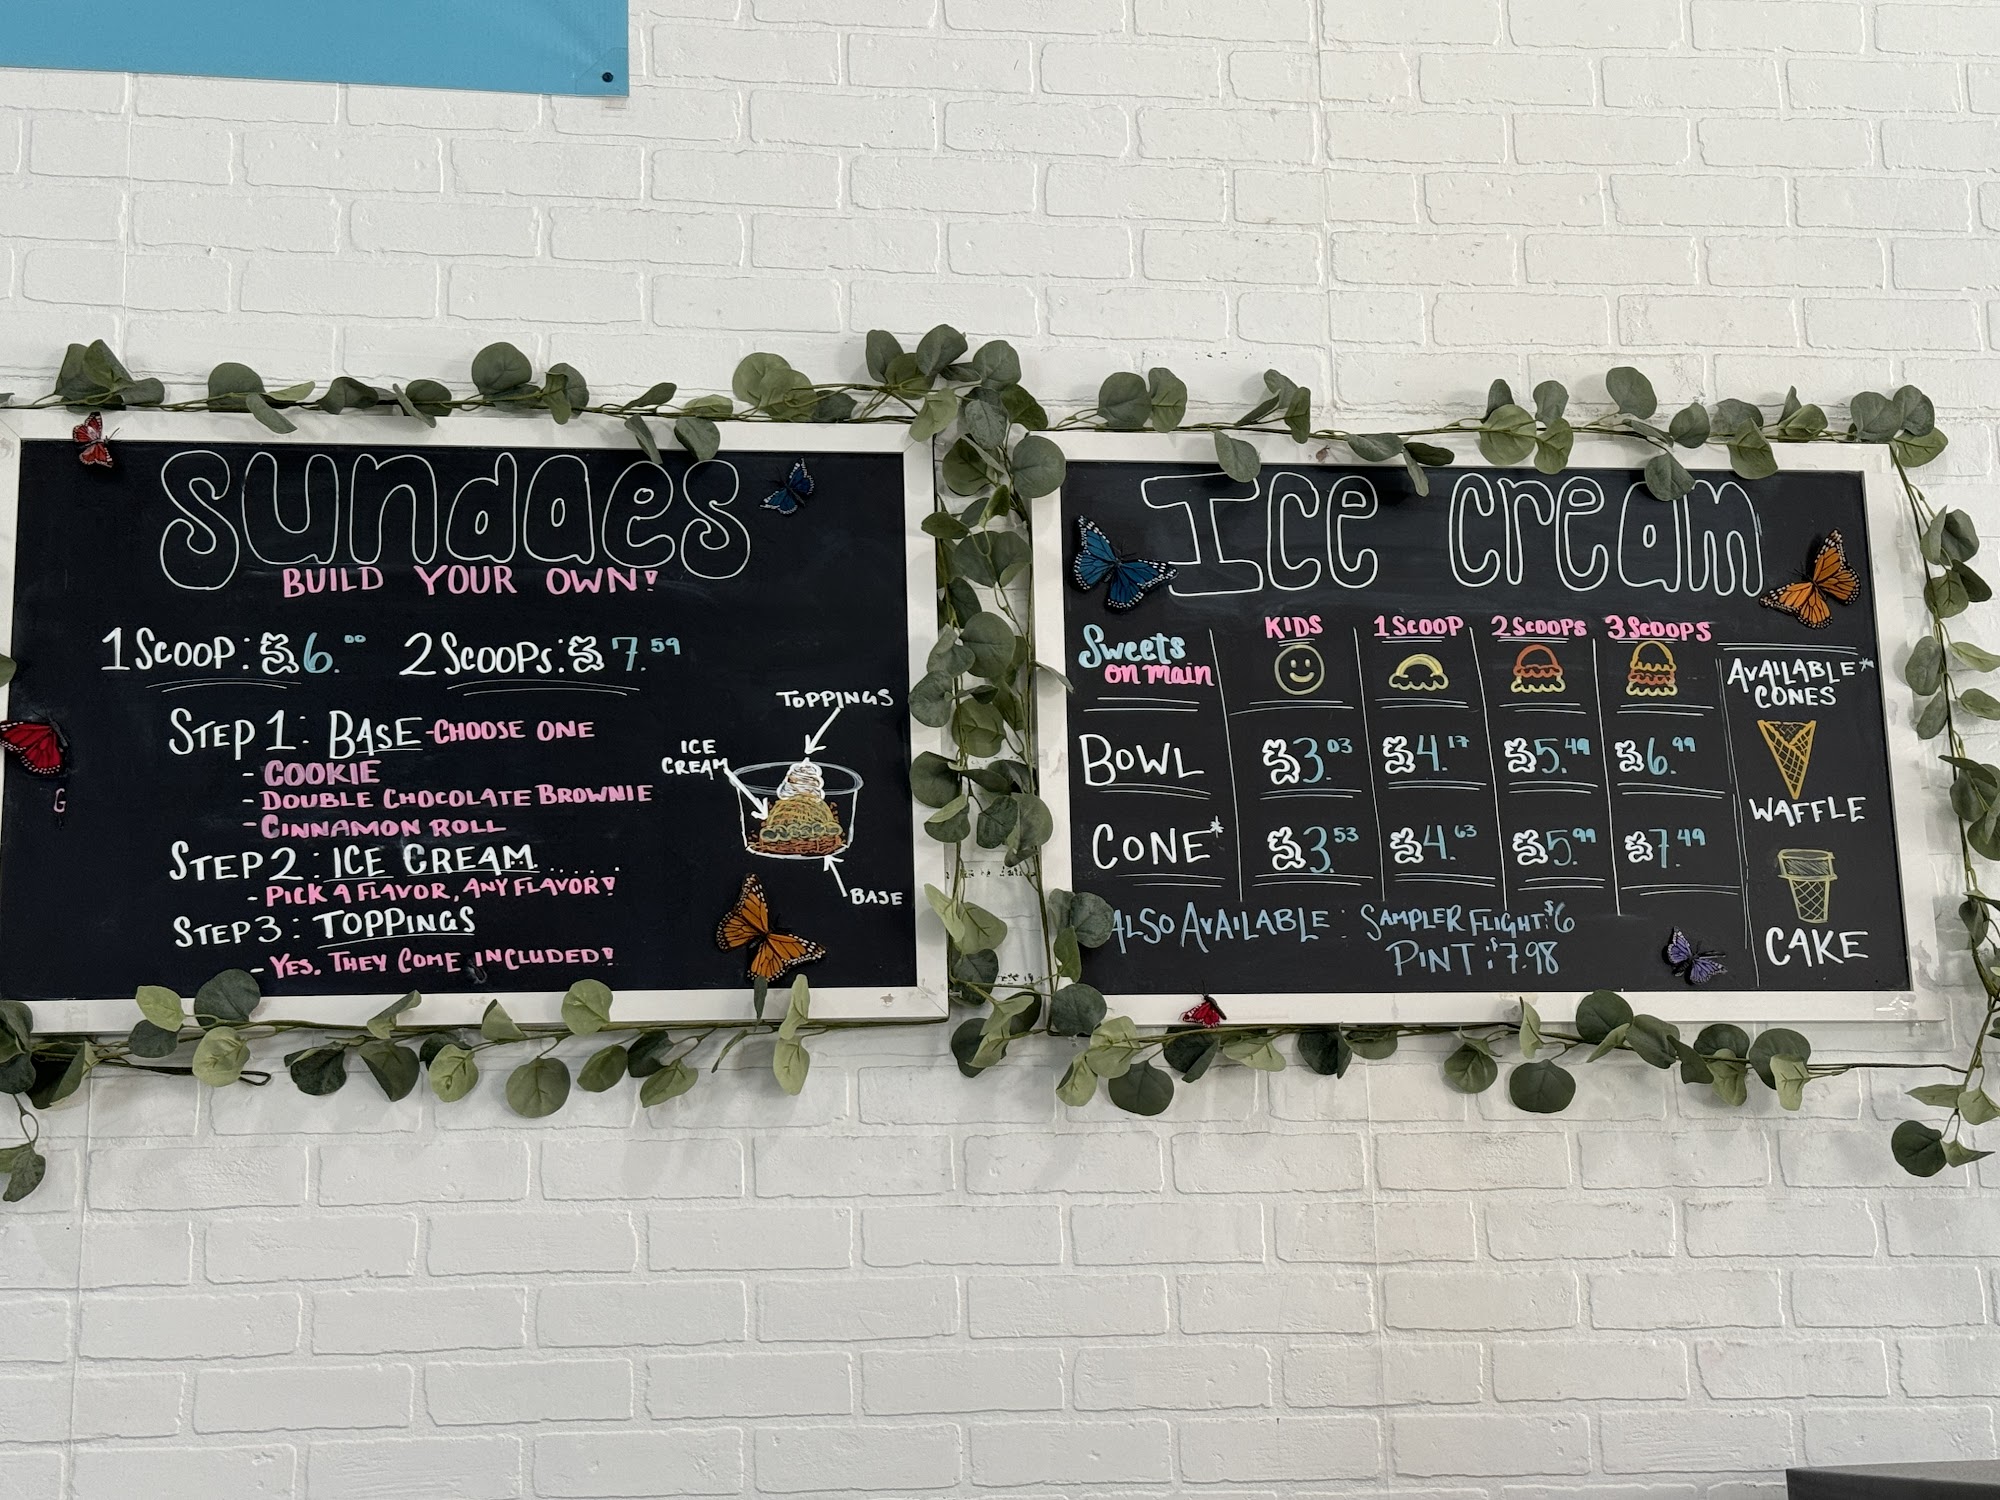 Sundaes
BUILD YOUR OWN!
1 SCOOP: $6.00 2 SCOOPS: $7.59
STEP 1: BASE - CHOOSE ONE
- COOKIE
- DOUBLE CHOCOLATE BROWNIE
- CINNAMON ROLL
STEP 2: ICE CREAM......
- PICK A FLAVOR, ANY FLAVOR!
STEP 3: TOPPINGS
- YES, THEY COME INCLUDED!
TOPPINGS
ICE
CREAM
BASE
G
Ice cream
Sweets
on main
KIDS 1 SCOOP 2 SCOOPS 3 SCOOPS
BOWL $3.03 $4.17 $5.49 $6.99
CONE* $3.53 $4.63 $5.99 $7.49
ALSO AVAILABLE: SAMPLER FLIGHT: $6
PINT: $7.98
AVAILABLE*
CONES
WAFFLE
CAKE